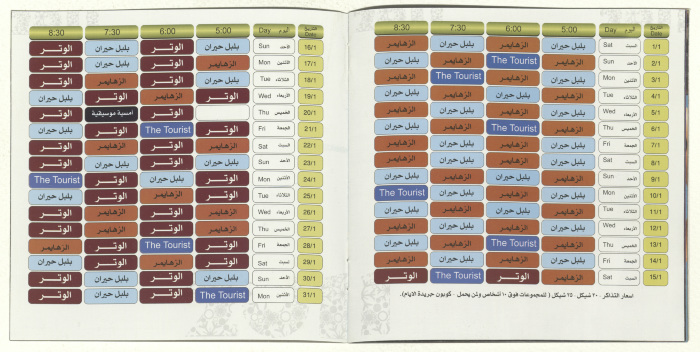 التاريخ Date اليوم Day 5:00 6:00 7:30 8:30
1/1 السبت Sat بلبل حيران الزهايمر بلبل حيران الزهايمر
2/1 الأحد Sun الزهايمر The Tourist الزهايمر بلبل حيران
3/1 الاثنين Mon بلبل حيران الزهايمر The Tourist الزهايمر
4/1 الثلاثاء Tue الزهايمر بلبل حيران الزهايمر بلبل حيران
5/1 الأربعاء Wed بلبل حيران الزهايمر بلبل حيران الزهايمر
6/1 الخميس Thu الزهايمر The Tourist الزهايمر بلبل حيران
7/1 الجمعة Fri بلبل حيران الزهايمر بلبل حيران الزهايمر
8/1 السبت Sat الزهايمر بلبل حيران الزهايمر بلبل حيران
9/1 الأحد Sun بلبل حيران الزهايمر بلبل حيران الزهايمر
10/1 الاثنين Mon الزهايمر بلبل حيران الزهايمر The Tourist
11/1 الثلاثاء Tue بلبل حيران الزهايمر بلبل حيران الزهايمر
12/1 الأربعاء Wed الزهايمر بلبل حيران الزهايمر بلبل حيران
13/1 الخميس Thu الزهايمر The Tourist بلبل حيران الزهايمر
14/1 الجمعة Fri بلبل حيران الزهايمر الزهايمر بلبل حيران
15/1 السبت Sat الزهايمر الوتر The Tourist الوتر
اسعار التذاكر: ٣٠ شيكل، ٢٥ شيكل ( للمجموعات فوق ١٠ أشخاص ولمن يحمل كوبون جريدة الايام).
التاريخ Date اليوم Day 5:00 6:00 7:30 8:30
16/1 الأحد Sun بلبل حيران الوتر بلبل حيران الوتر
17/1 الاثنين Mon الزهايمر الوتر بلبل حيران الوتر
18/1 الثلاثاء Tue بلبل حيران الوتر الزهايمر الوتر
19/1 الأربعاء Wed الوتر الزهايمر الوتر بلبل حيران
20/1 الخميس Thu الوتر امسية موسيقية الوتر
21/1 الجمعة Fri الوتر The Tourist الوتر بلبل حيران
22/1 السبت Sat الزهايمر الوتر الزهايمر الوتر
23/1 الأحد Sun بلبل حيران الوتر بلبل حيران الوتر
24/1 الاثنين Mon الوتر بلبل حيران الوتر The Tourist
25/1 الثلاثاء Tue الوتر الزهايمر الوتر بلبل حيران
26/1 الأربعاء Wed الزهايمر الوتر الزهايمر الوتر
27/1 الخميس Thu الزهايمر الوتر الزهايمر الوتر
28/1 الجمعة Fri الوتر The Tourist الوتر الزهايمر
29/1 السبت Sat الوتر الزهايمر الوتر بلبل حيران
30/1 الأحد Sun بلبل حيران الوتر بلبل حيران الوتر
31/1 الاثنين Mon The Tourist الوتر بلبل حيران الوتر